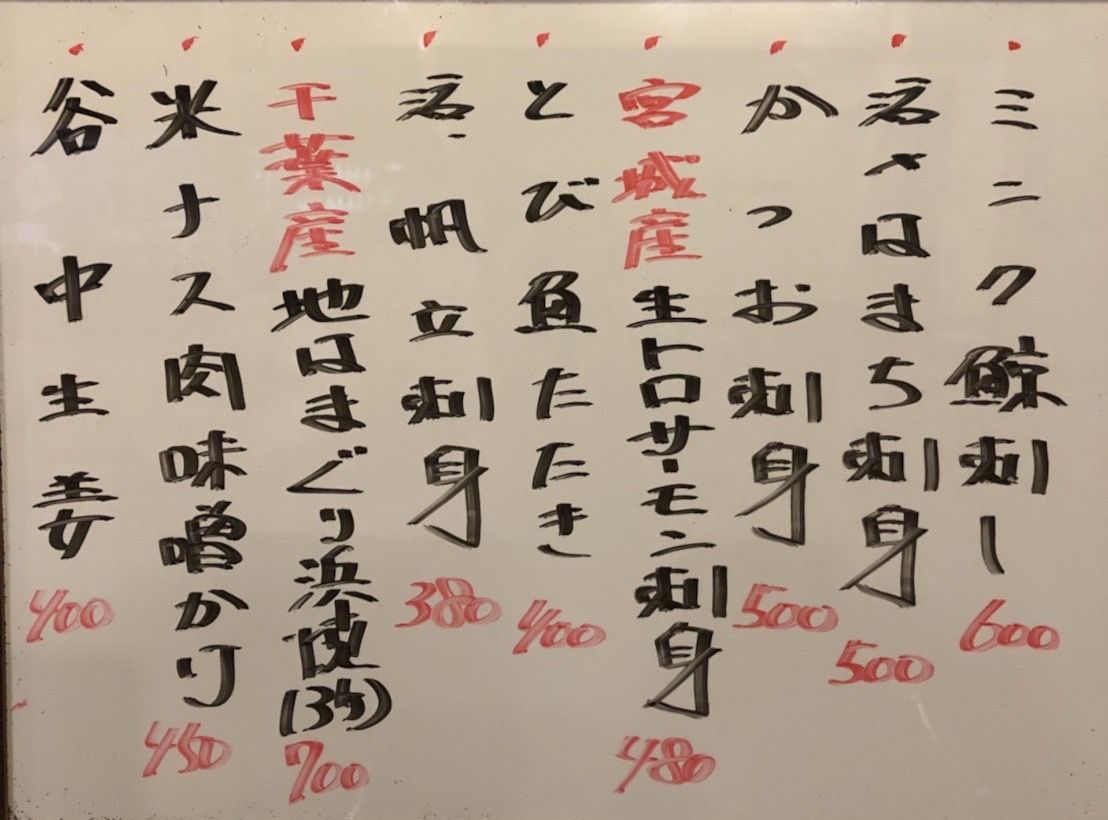 ミンク鯨刺し 600
活〆はまち刺身 500
かつお刺身 500
宮城産生トロサーモン刺身 480
とび魚たたき 400
活帆立刺身 380
千葉産地はまぐり浜焼(3ケ) 700
米ナス肉味噌かけ 450
谷中生姜 400